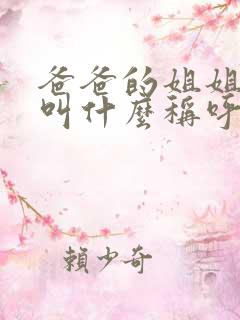 爸爸的姐姐
叫什麼稱呼
賴少奇